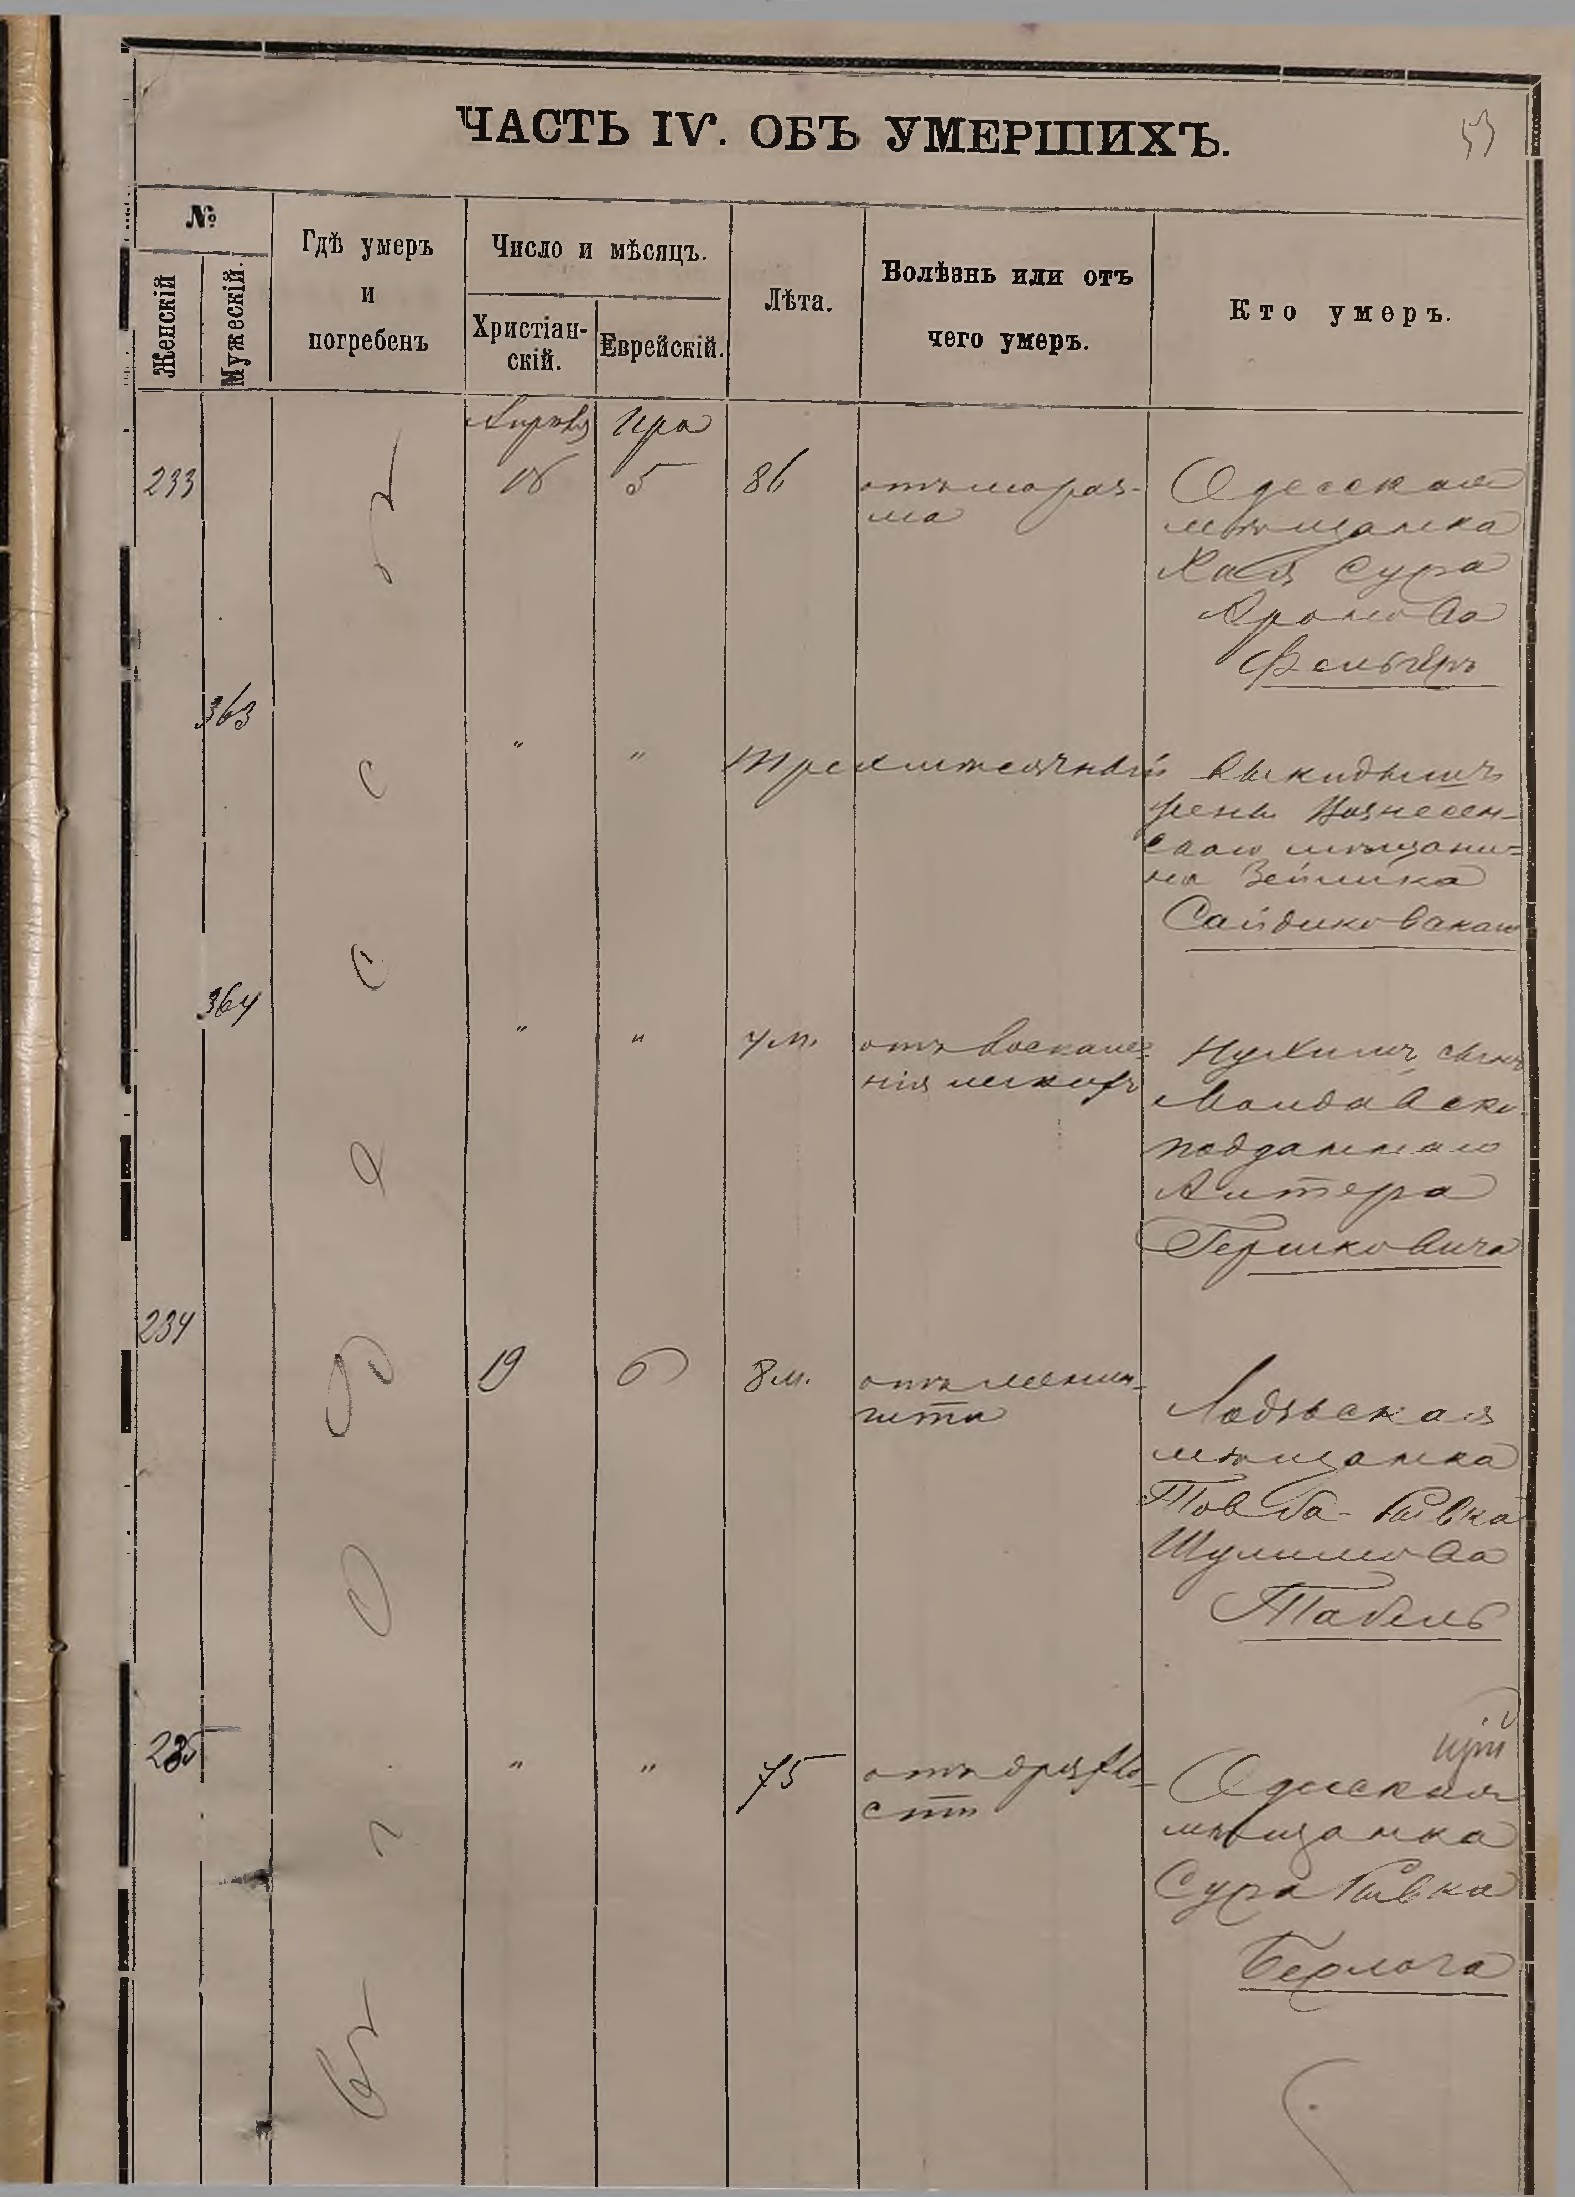 ЧАСТЬ IV. ОБЪ УМЕРШИХЪ.
53
№
Женскій
Мужескій.
Гдѣ умеръ
и
погребенъ
Число и мѣсяцъ.
Христіан-
скій.
Еврейскій.
Лѣта.
Болѣзнь или отъ
чего умеръ.
Кто умеръ.
въ г. Одессѣ
Апрѣля Іра
233 18 5 86 отъ мораз-
ма
Одесская
мѣщанка
Хая Сура
Аронова
Фельгеръ
363 " " трехмѣсячный выкидышъ
жены Вознесен-
скаго мѣщани-
на Зейлика
Сайдиковскаго
364 " " 4 м. отъ воспале-
нія легкихъ
Нухимъ, сынъ
Молдавско
подданнаго
Алтера
Гершковича
234 19 6 8 м. отъ менин-
гита
Лодзьская
мѣщанка
Товба-Ривка
Шулимова
Табель
235 " " 75 отъ дряхло-
сти
Одесская
мѣщанка
Сура Ривка
Берлога